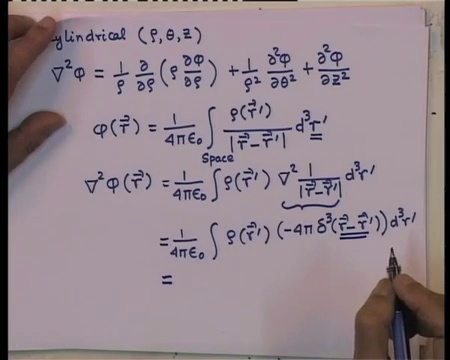 ylindrical (ρ, θ, z)
∇²φ = 1/ρ ∂/∂ρ (ρ ∂φ/∂ρ) + 1/ρ² ∂²φ/∂θ² + ∂²φ/∂z²
φ(r⃗) = 1/4πε₀ ∫ ρ(r⃗')/|r⃗-r⃗'| d³r'
Space
∇²φ(r⃗) = 1/4πε₀ ∫ ρ(r⃗') ∇² 1/|r⃗-r⃗'| d³r'
= 1/4πε₀ ∫ ρ(r⃗') (-4π δ³(r⃗-r⃗')) d³r'
=